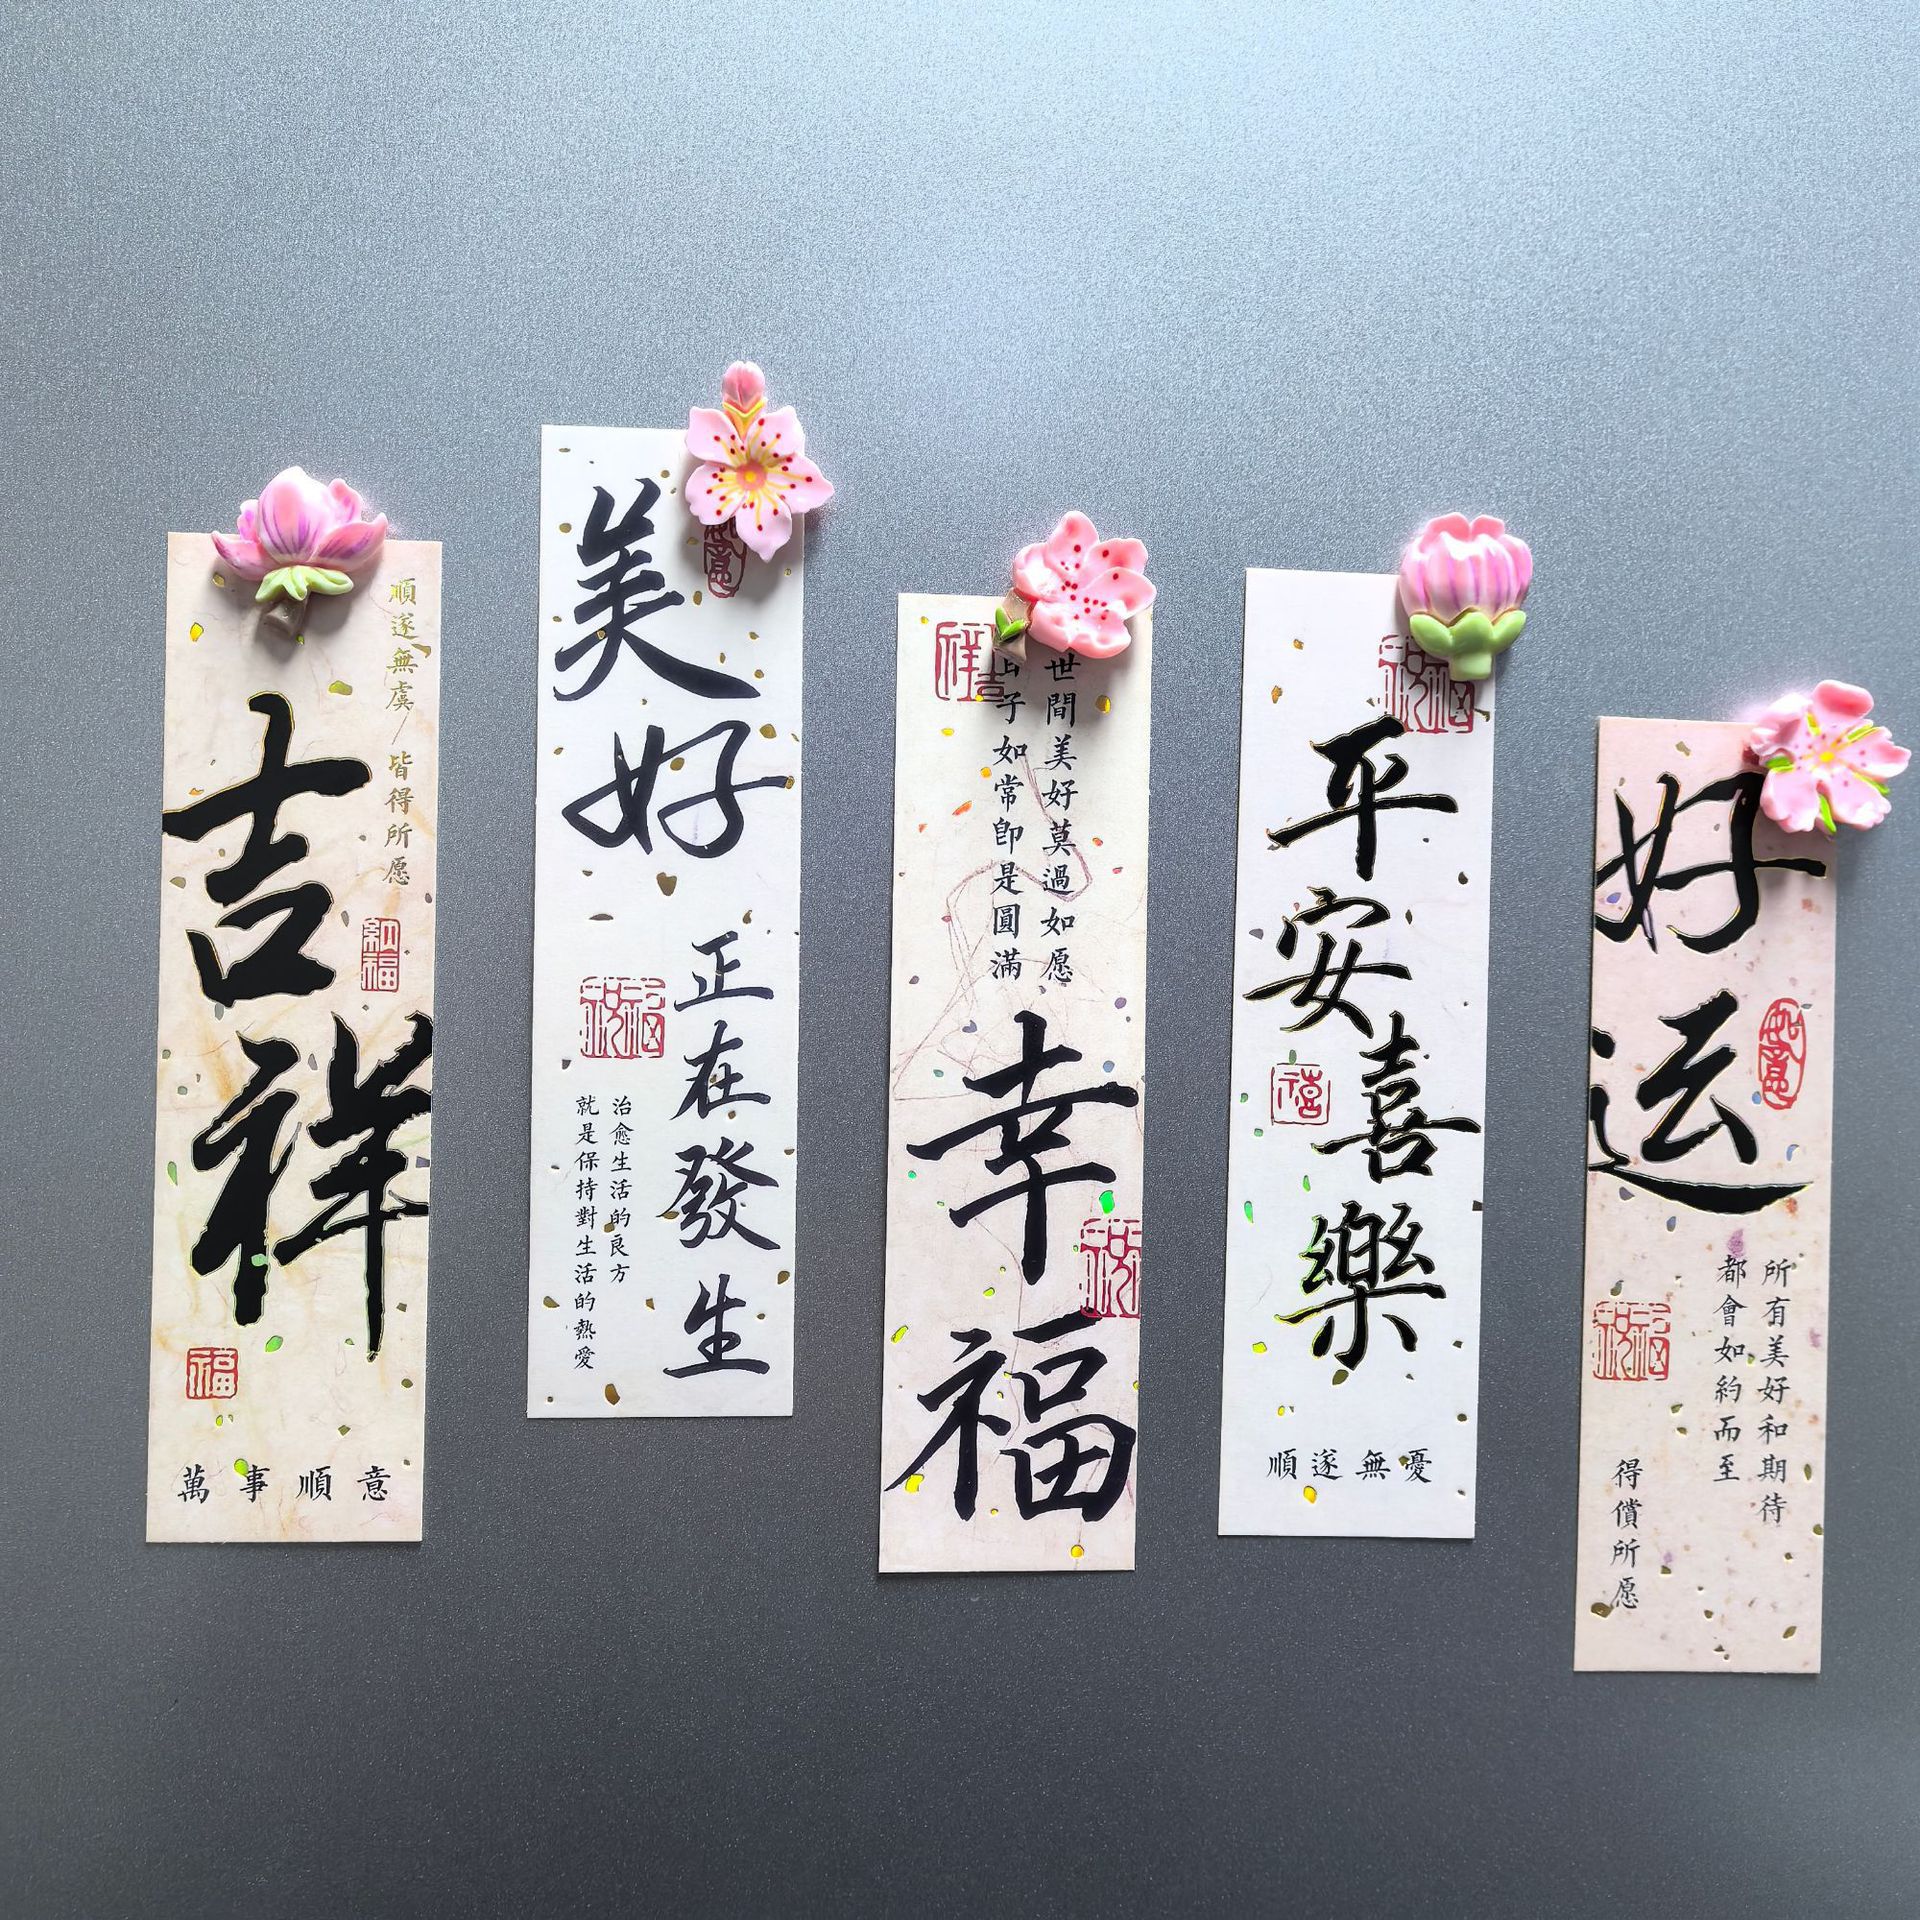 順遂無虞
皆得所愿
吉祥
納福
福
萬事順意
美好
如意
正在發生
祝福
治愈生活的良方
就是保持對生活的熱愛
吉祥
世間美好莫過如愿
日子如常卽是圓滿
幸福
祝
祝福
平安
喜樂
禧
順遂無憂
好运
如意
所有美好和期待
都會如約而至
祝福
得償所愿